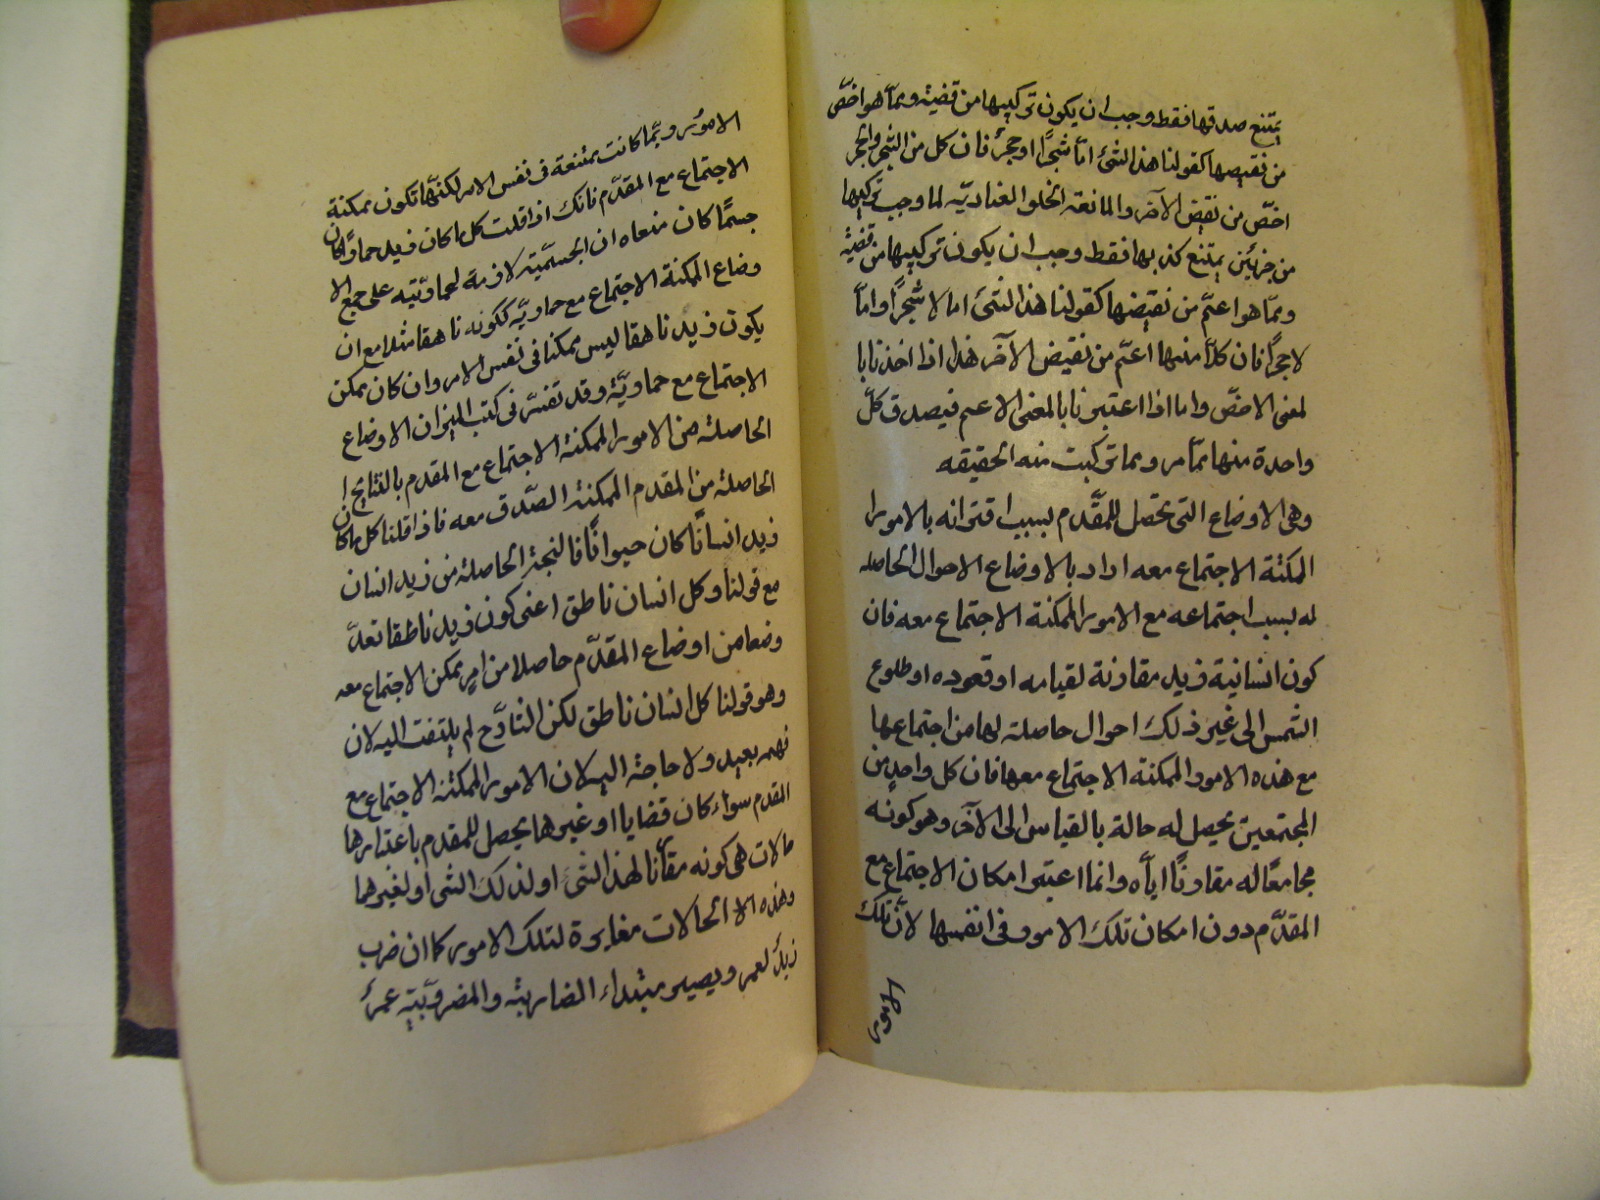 يمتنع صدقها فقط وجب ان يكون تركيبها من قضية ومما هو اخصّ
من نقيضها كقولنا هذا الشئ امّا شجرًا او حجرًا فان كل من الشجر والحجر
اخصّ من نقيض الآخر والمانعة الخلو العناديّه لما وجب تركيبها
من جزئين يمتنع كذبها فقط وجب ان يكون تركيبها من قضية
وممّا هو اعمّ من نقيضها كقولنا هذا الشئ اما لا شجرًا واما
لا حجرًا فان كلّا منهما اعمّ من نقيض الآخر هذا اذا اخذنا با
لمعنى الاخصّ واما اذا اعتبرنا بالمعنى الاعم فيصدق كلّ
واحدة منها ممّا مر ومما تركبت منه الحقيقه
وهى الاوضاع التى تحصل للمقّدم بسبب اقترانه بالامور ا
لمكنة الاجتماع معه اراد بالاوضاع الاحوال الحاصله
له بسبب اجتماعه مع الامور الممكنة الاجتماع معه فان
كون انسانية زيد مقارنة لقيامه او قعوده او طلوع
الشمس الى غير ذلك احوال حاصلة لها من اجتماعها
مع هذه الامور الممكنة الاجتماع معها فان كل واحدٍ من
المجتمعين يحصل له حالة بالقياس الى الآخر وهو كونه
مجامعًا له مقارنًا ايّاه وانما اعتبر امكان الاجتماع مع
المقدّم دون امكان تلك الامور فى انفسها لانّ تلك
الامور
الامور ربّما كانت ممتنعة فى نفس الامر لكنّها تكون ممكنة
الاجتماع مع المقدّم فانك اذا قلت كلما كان زيد حمارًا كان
جسمًا كان معناه ان الجسميّة لازمة لحماريّتيه على جميع الا
وضاع الممكنة الاجتماع مع حماريّه ككونه ناهقا مثلا مع ان
يكون زيد ناهقا ليس ممكنا فى نفس الامر وان كان ممكن
الاجتماع مع حماريّة وقد تفسّر فى كتب الميزان الاوضاع
الحاصلة من الامور الممكنة الاجتماع مع المقدم بالنتايج ا
لحاصلة من المقدم الممكنة الصّدق معه فاذا قلنا كلما كان
زيد انسانًا كان حيوانًا فالنجة الحاصلة من زيد انسان
مع قولنا وكل انسان ناطق اعنى كون زيد ناطقا تعدّ
وضعا من اوضاع المقدّم حاصلا من امر ممكن الاجتماع معه
وهو قولنا كل انسان ناطق لكن الشارح لم يلتفت اليه لان
فهمه بعيد ولا حاجة اليه لان الامور الممكنة الاجتماع مع
المقدم سواء كان قضايا او غيرها يحصل للمقدم باعتبارها
حالات هى كونه مقارنا لهذا الشئ او لذلك الشى او لغيرهما
وهذه الا الحالات مغايرة لتلك الامور كما ان ضرب
زيدٌ لعمر ويصير مبتداء الضاربية والمضروبية عمرٌ